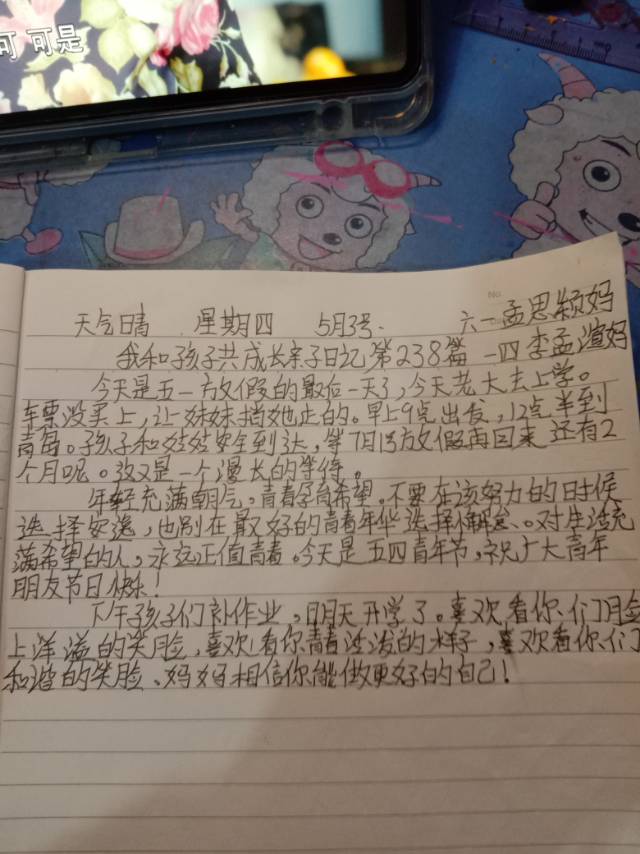 可 可是
天气晴 星期四 5月3号. 六一孟思颖妈
我和孩子共成长亲子日记第238篇 一四李孟渲妈
今天是五一放假的最后一天了,今天老大去上学。
车票没买上,让妹妹捎她走的。早上9点出发,12点半到
青岛。孩子和姑姑安全到达,等7月15放假再回来 还有2
个月呢。这又是一个漫长的等待。
年轻充满朝气。青春孕育希望。不要在该努力的时候
选择安逸,也别在最好的青春年华选择懈怠。对生活充
满希望的人,永远正值青春。今天是五四青年节,祝广大青年
朋友节日快乐!
下午孩子们补作业,明天开学了。喜欢看你们脸
上洋溢的笑脸,喜欢看你青春活泼的样子,喜欢看你们
和谐的笑脸、妈妈相信你能做更好的自己!